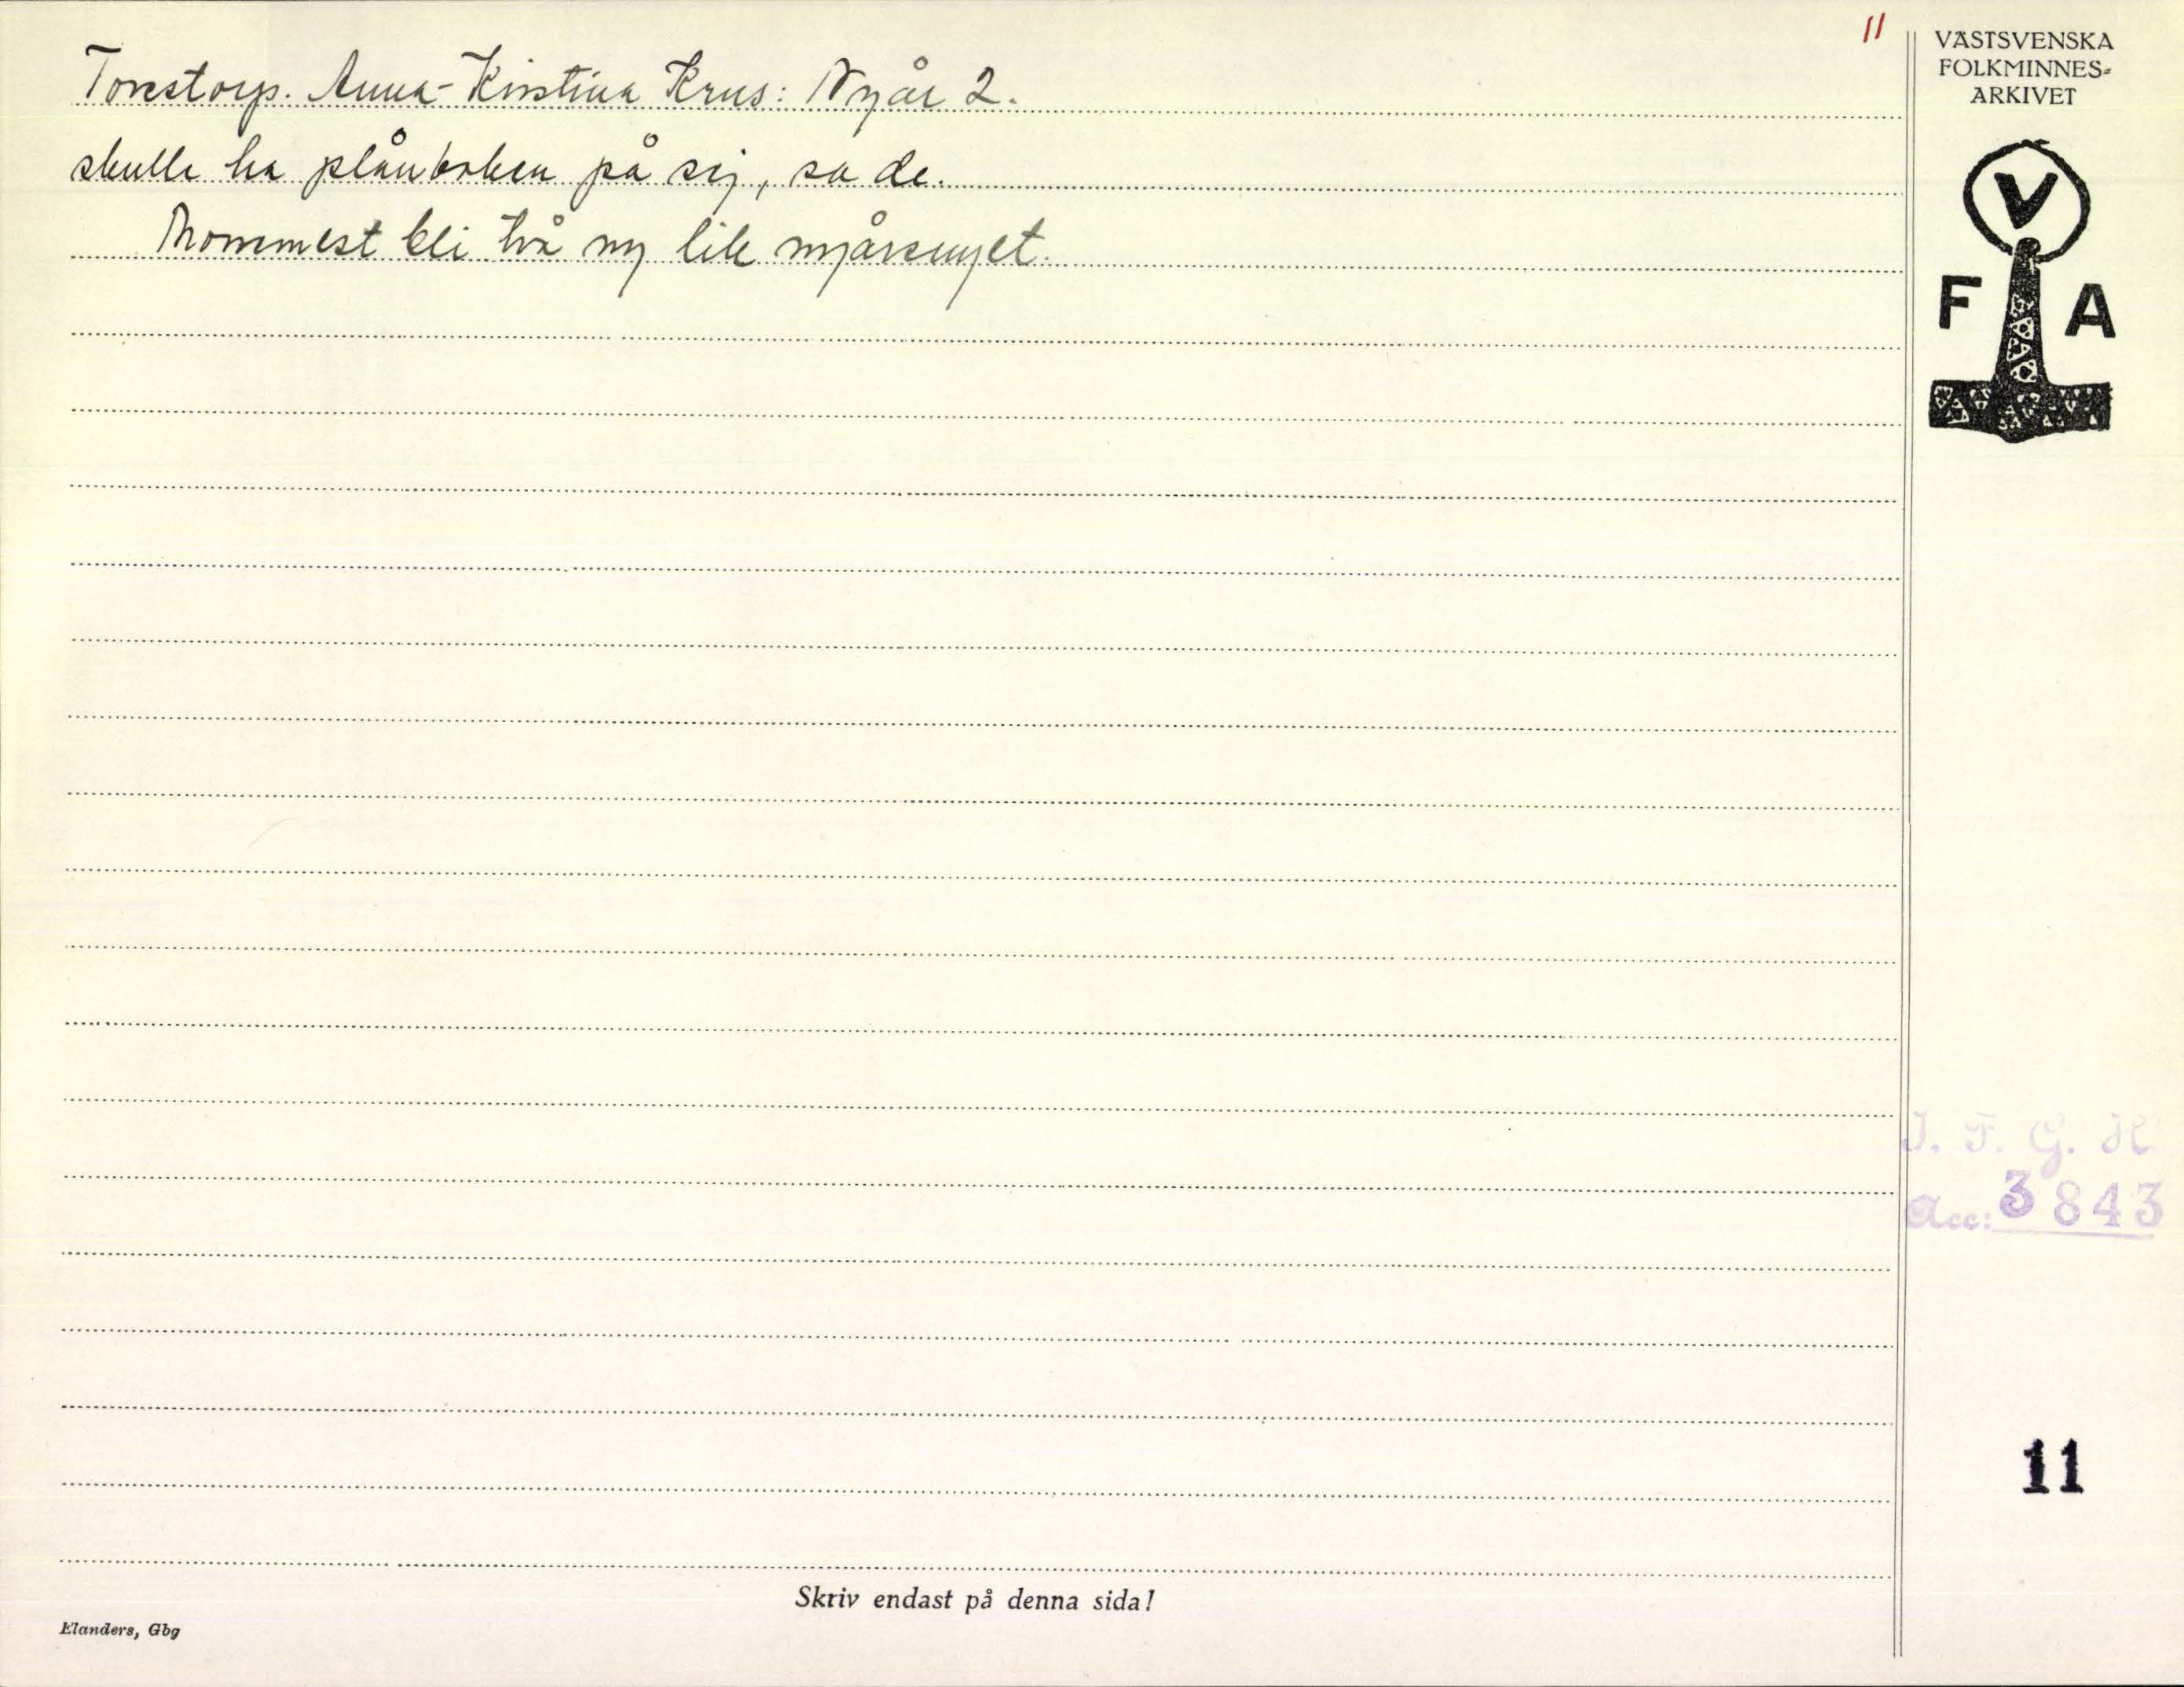 11
VÄSTSVENSKA
FOLKMINNES-
ARKIVET
V
F A
Torestorp. Anna-Kirstina Krus: Nyår 2.
skulle ha plånboken på sig, sa de.
bli två ny lik nyårsnyet.
I. F. G. H
Acc: 3843
11
Skriv endast på denna sida!
Elanders, Gbg